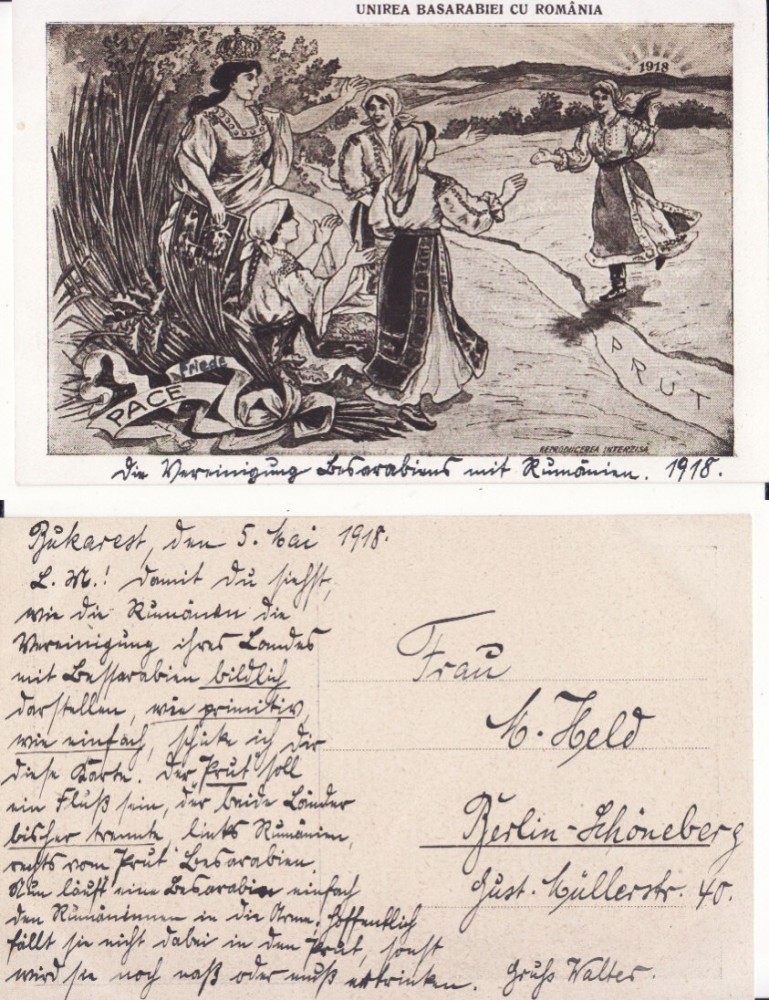 UNIREA BASARABIEI CU ROMÂNIA
1918
Friede
PACE
PRUT
REPRODUCEREA INTERZISĂ
Die Vereinigung Besarabiens mit Rumänien. 1918.
Bukarest, den 5. Mai 1918.
L. M.! Damit du siehst,
wie die Rumänen die
Vereinigung ihres Landes
mit Bessarabien bildlich
darstellen, wie primitiv,
wie einfach, schicke ich dir
diese Karte. Der "Prut" soll
ein Fluß sein, der beide Länder
bischer trennte, links Rumänien,
rechts vom "Prut" Besarabien.
Nun läuft eine Besarabin einfach
den Rumäninnen in die Arme. Hoffentlich
fällt sie nicht dabei in den Prut, sonst
wird sie noch naß oder muß ertrinken. Gruß Walter.
Frau
M. Held
Berlin-Schöneberg
Gust. Müllerstr. 40.